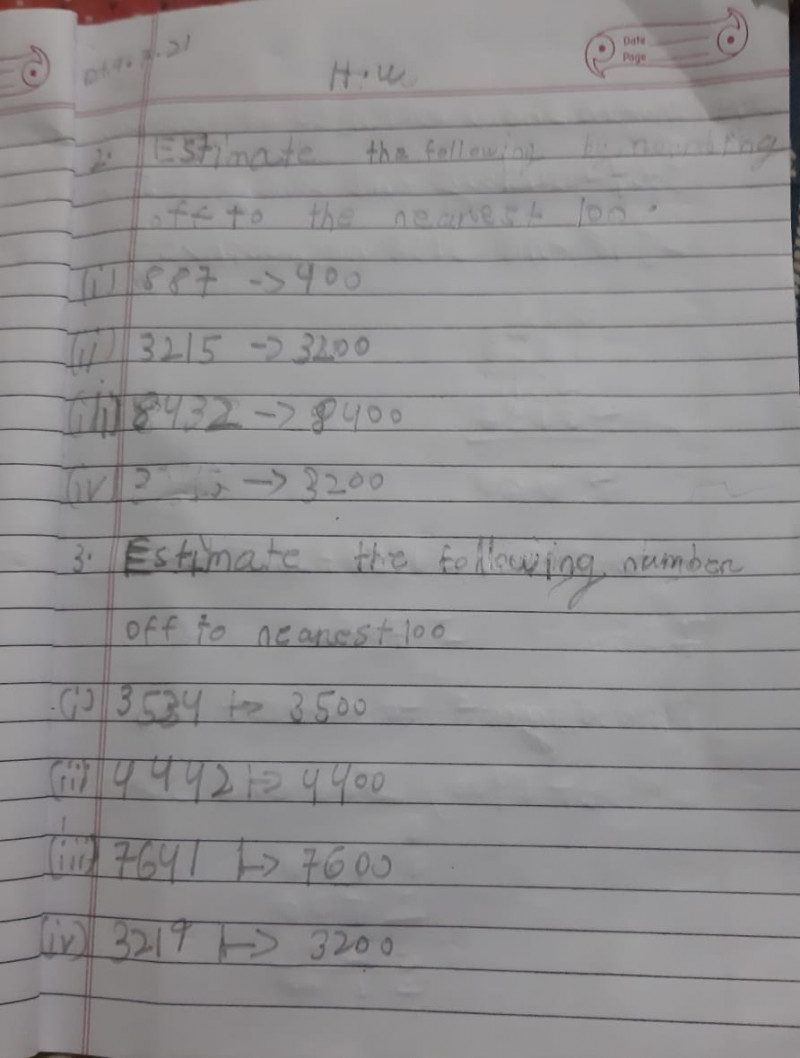 Date
Page
H.W
2. Estimate the following by
off to the nearest 100.
(i) 887 -> 900
(ii) 3215 -> 3200
(iii) 8432 -> 8400
(iv) -> 3200
3. Estimate the following number
off to nearest 100
(i) 3534 |-> 3500
(ii) 4442 |-> 4400
(iii) 7641 |-> 7600
(iv) 3219 |-> 3200